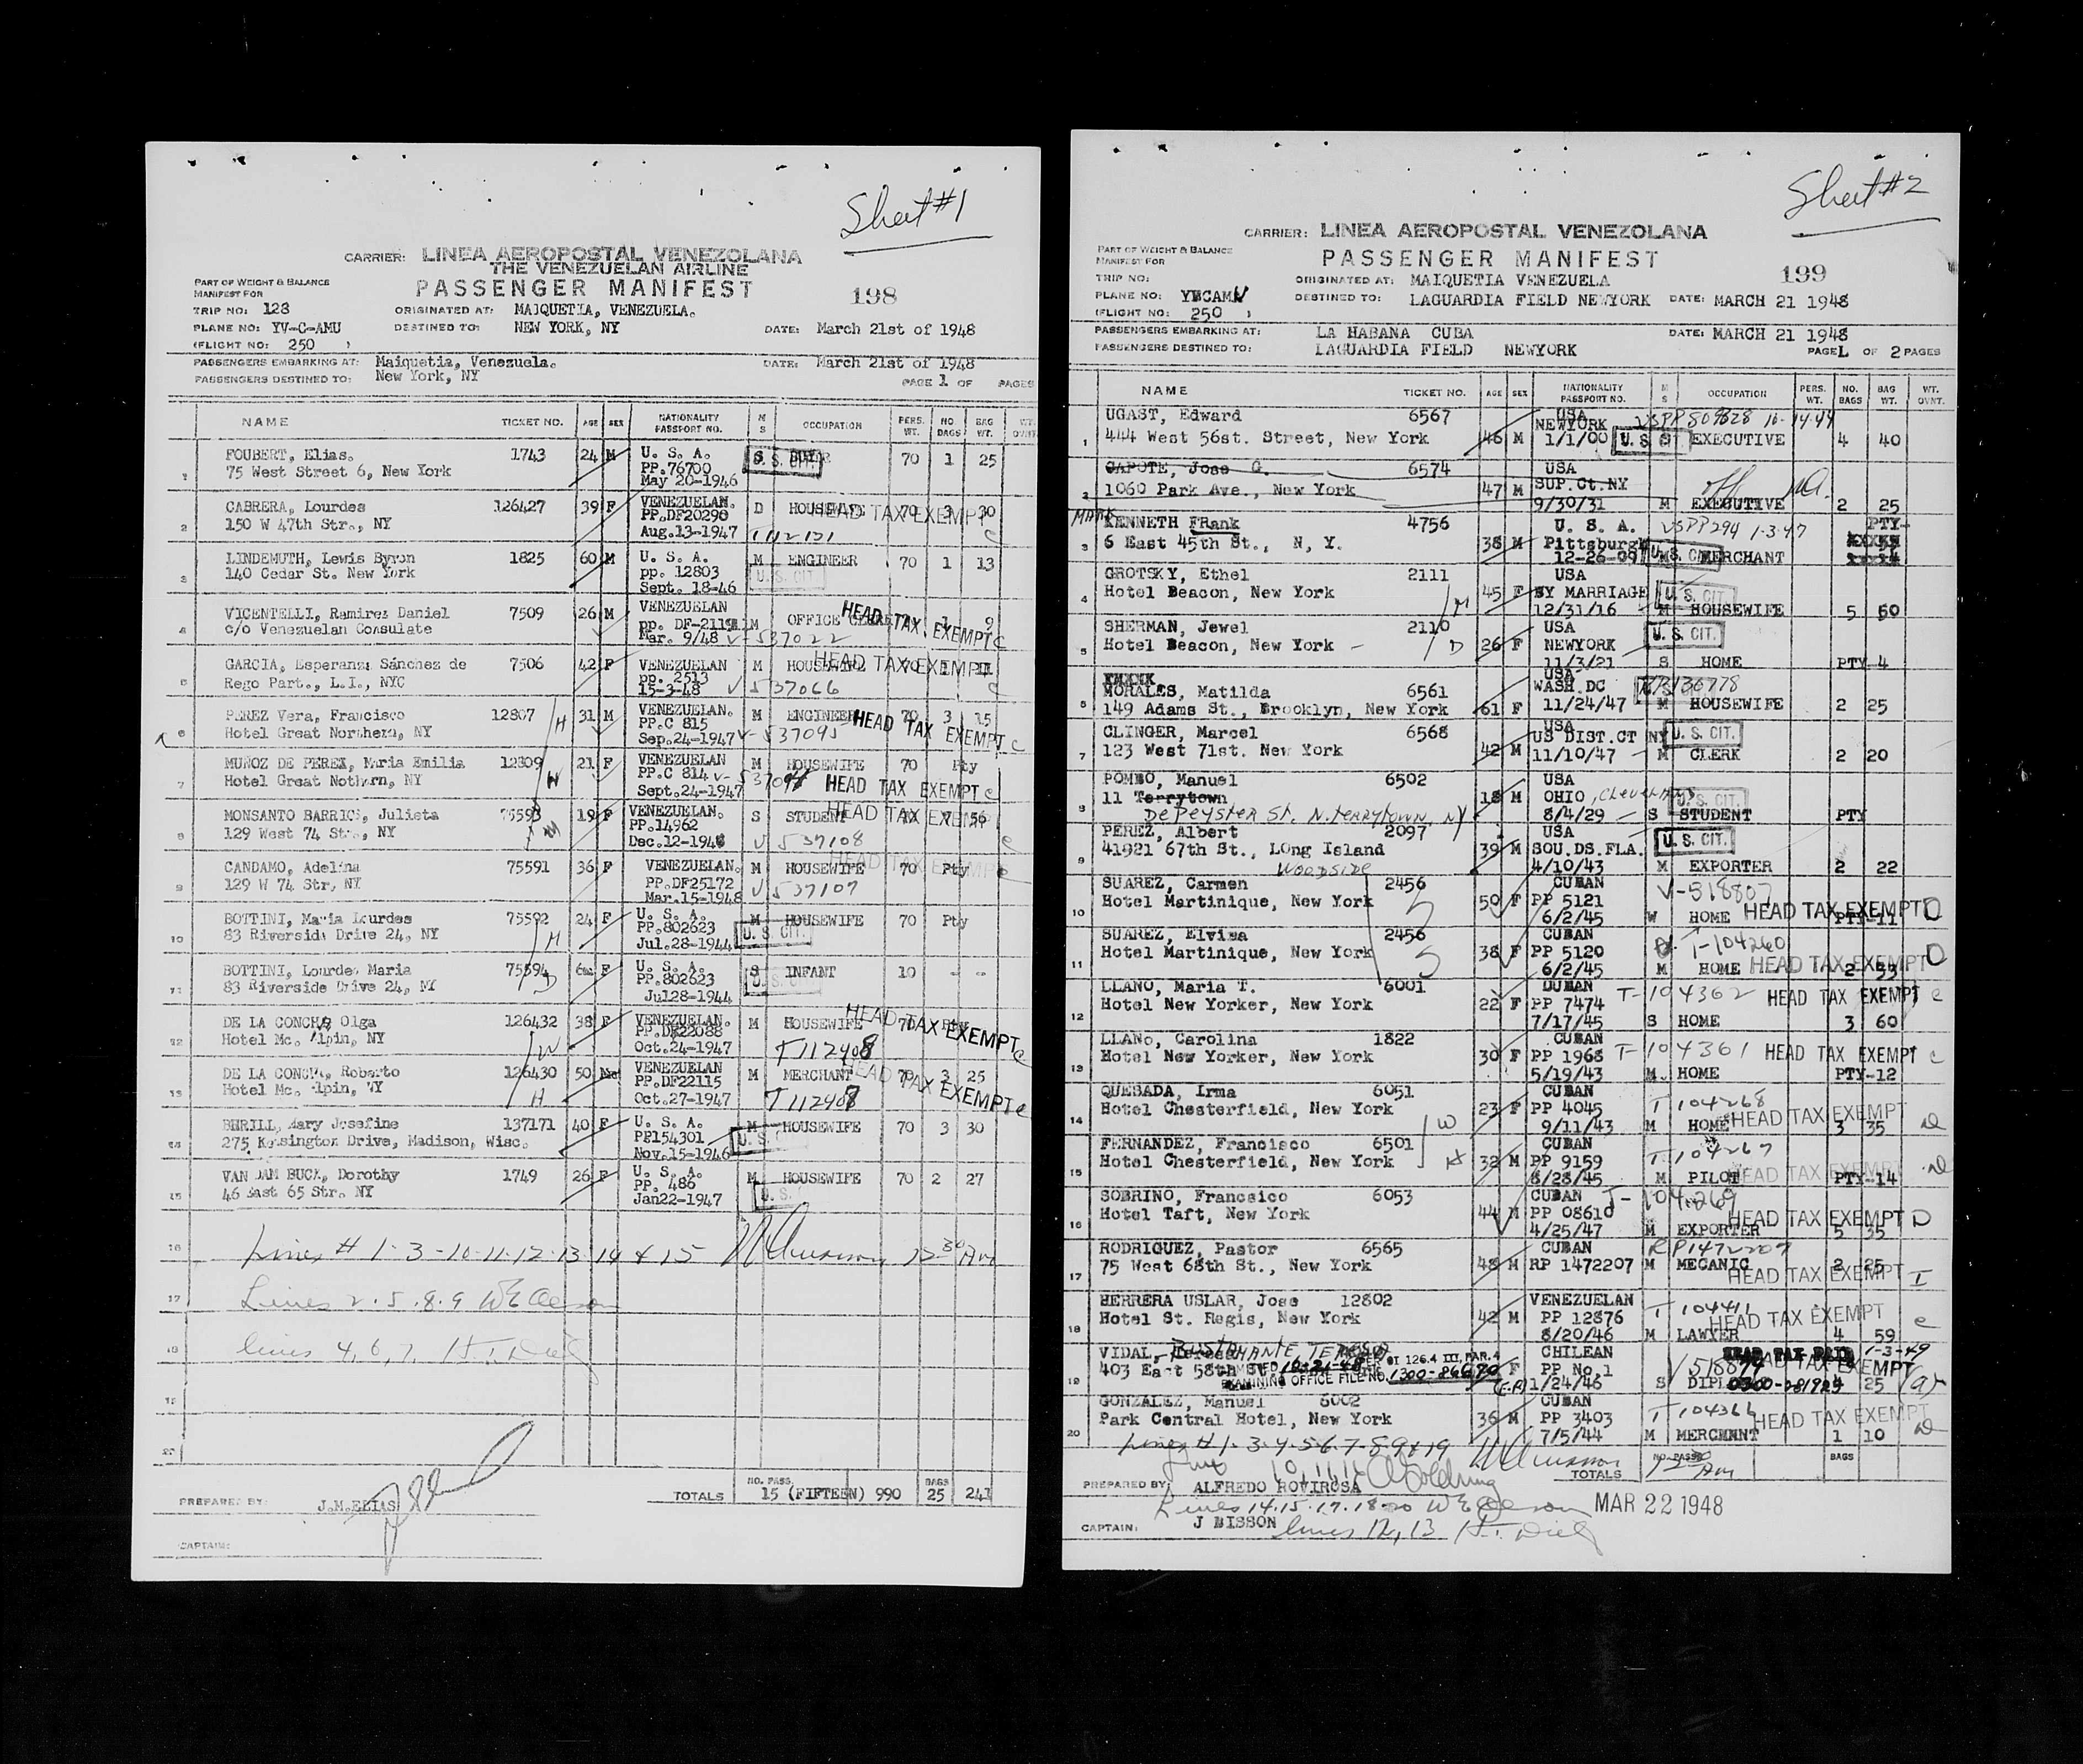 Sheet #1
CARRIER: LINEA AEROPOSTAL VENEZOLANA
THE VENEZUELAN AIRLINE
PART OF WEIGHT & BALANCE
MANIFEST FOR
PASSENGER MANIFEST
198
TRIP NO: 128
ORIGINATED AT: MAIQUETIA, VENEZUELA.
PLANE NO: YV-C-AMU
DESTINED TO: NEW YORK, NY
DATE: March 21st of 1948
(FLIGHT NO: 250 )
PASSENGERS EMBARKING AT: Maiquetia, Venezuela.
DATE: March 21st of 1948
PASSENGERS DESTINED TO: New York, NY
PAGE 1 OF PAGES
NAME TICKET NO. AGE SEX NATIONALITY PASSPORT NO. M S OCCUPATION PERS. WT. NO. BAGS BAG WT. WT. OVNT.
FOUBERT, Elias. 1743 24 M U. S. A. 70 1 25
1 75 West Street 6, New York PP.76700 U. S. CIT.
May 20-1946
CABRERA, Lourdes 126427 39 F VENEZUELAN. D HOUSEWIFE 70 3 30
2 150 W 47th Str., NY PP.DF20290 HEAD TAX EXEMPT
Aug.13-1947 T112121 C
LINDEMUTH, Lewis Byron 1825 60 M U. S. A. M ENGINEER 70 1 13
3 140 Cedar St. New York pp. 12803 U. S. CIT.
Sept. 18-46
VICENTELLI, Ramirez Daniel 7509 26 M VENEZUELAN M OFFICE 9
4 c/o Venezuelan Consulate pp. DF-2119 HEAD TAX EXEMPT C
Mar. 9/48 V-537022
GARCIA, Esperanza Sánchez de 7506 42 F VENEZUELAN M HOUSEWIFE 70 1 11
5 Rego Part., L.I., NYC pp. 2513 HEAD TAX EXEMPT
15-3-48 V 537066 C
PEREZ Vera, Francisco 12807 H 31 M VENEZUELAN. M ENGINEER 70 3 15
6 Hotel Great Northern, NY PP.C 815 HEAD TAX EXEMPT C
Sep.24-1947 V-537095
MUÑOZ DE PEREX, Maria Emilia 12809 W 21 F VENEZUELAN M HOUSEWIFE 70 Pty
7 Hotel Great Nothern, NY PP.C 814 V-537094 HEAD TAX EXEMPT C
Sept.24-1947
MONSANTO BARRIOS, Julieta 75593 19 F VENEZUELAN. S STUDENT 70 7 56
8 129 West 74 Str., NY M PP.14962 HEAD TAX EXEMPT
Dec.12-1946 V 537108 C
CANDAMO, Adelina 75591 36 F VENEZUELAN. M HOUSEWIFE 70 Pty
9 129 W 74 Str, NY PP.DF25172 HEAD TAX EXEMPT C
Mar.15-1948 V 537107
BOTTINI, Maria Lourdes 75592 24 F U. S. A. M HOUSEWIFE 70 Pty
10 83 Riverside Drive 24, NY M PP.802623 U. S. CIT.
Jul.28-1944
BOTTINI, Lourdes Maria 75594 6m F U. S. A. S INFANT 10 - -
11 83 Riverside Drive 24, NY D PP.802623 U. S. CIT.
Jul28-1944
DE LA CONCHA Olga 126432 38 F VENEZUELAN. M HOUSEWIFE 70 Pty
12 Hotel Mc. Alpin, NY W PP.DF22088 HEAD TAX EXEMPT C
Oct.24-1947 T112408
DE LA CONCHA, Roberto 126430 50 VENEZUELAN M MERCHANT 70 3 25
13 Hotel Mc. Alpin, NY H PP.DF22115 HEAD TAX EXEMPT C
Oct.27-1947 T112407
BERILL, Mary Josefine 137171 40 F U. S. A. M HOUSEWIFE 70 3 30
14 275 Kensington Drive, Madison, Wisc. PP154301 U. S. CIT.
Nov.15-1946
VAN DAM BUCK, Dorothy 1749 26 F U. S. A. M HOUSEWIFE 70 2 27
15 46 East 65 Str. NY PP. 486 U. S.
Jan22-1947
16 Lines # 1-3-10-11-12-13-14 & 15 12 30 AM
17 Lines 2.5.8.9
18 lines 4,6,7,
19
20
TOTALS NO. PASS. 15 (FIFTEEN) 990 BAGS 25 241
PREPARED BY: J.M.ELIAS
CAPTAIN:
Sheet #2
CARRIER: LINEA AEROPOSTAL VENEZOLANA
PART OF WEIGHT & BALANCE
MANIFEST FOR
PASSENGER MANIFEST
199
TRIP NO:
ORIGINATED AT: MAIQUETIA VENEZUELA
PLANE NO: YVCAMU
DESTINED TO: LAGUARDIA FIELD NEWYORK DATE: MARCH 21 1948
(FLIGHT NO: 250 )
PASSENGERS EMBARKING AT: LA HABANA CUBA DATE: MARCH 21 1948
PASSENGERS DESTINED TO: LAGUARDIA FIELD NEWYORK PAGE 1 OF 2 PAGES
NAME TICKET NO. AGE SEX NATIONALITY PASSPORT NO. M S OCCUPATION PERS. WT. NO. BAGS BAG WT. WT. OVNT.
UGAST, Edward 6567 USA USPP 809828 10-14-44
NEWYORK
1 444 West 56st. Street, New York 46 M 1/1/00 U. S. CIT. EXECUTIVE 4 40
CAPOTE, Jose G. 6574 USA
2 1060 Park Ave., New York 47 M SUP.Ct.NY off
9/30/31 M EXECUTIVE 2 25
MARK
KENNETH FRank 4756 U. S. A. USPP294 1-3-47 PTY-
3 6 East 45th St., N, Y. 38 M Pittsburgh
12-26-09 U. S. CIT. MERCHANT
GROTSKY, Ethel 2111 USA
4 Hotel Beacon, New York M 45 F BY MARRIAGE U. S. CIT.
12/31/16 M HOUSEWIFE 5 50
SHERMAN, Jewel 2110 USA U. S. CIT.
5 Hotel Beacon, New York D 26 F NEWYORK
11/3/21 S HOME PTY 4
USA
MORALES, Matilda 6561 WASH DC PP136778
6 149 Adams St., Brooklyn, New York 61 F 11/24/47 M HOUSEWIFE 2 25
CLINGER, Marcel 6568 USA
US DIST.CT NY U. S. CIT.
7 123 West 71st. New York 42 M 11/10/47 M CLERK 2 20
POMBO, Manuel 6502 USA
8 11 Terrytown 18 M OHIO, CLEVELAND U. S. CIT.
DePeyster St. N. Terrytown, NY 8/4/29 S STUDENT PTY
PEREZ, Albert 2097 USA
9 41921 67th St., LOng Island 39 M SOU.DS.FLA. U. S. CIT.
WOODSIDE 4/10/43 M EXPORTER 2 22
SUAREZ, Carmen 2456 CUBAN V-518807
10 Hotel Martinique, New York 50 F PP 5121
6/2/45 W HOME HEAD TAX EXEMPT D PTY-11
SUAREZ, Elvisa 2456 CUBAN T-104260
11 Hotel Martinique, New York 38 F PP 5120
6/2/45 M HOME HEAD TAX EXEMPT D 2 53
LLANO, Maria T. 6001 CUBAN
12 Hotel New Yorker, New York 22 F PP 7474 T-104362 HEAD TAX EXEMPT C
7/17/45 S HOME 3 60
LLANo, Carolina 1822 CUBAN
13 Hotel New Yorker, New York 30 F PP 1968 T-104361 HEAD TAX EXEMPT C
5/19/43 M HOME PTY-12
QUESADA, Irma 6051 CUBAN
14 Hotel Chesterfield, New York W 23 F PP 4045 T 104268
9/11/43 M HOME HEAD TAX EXEMPT 3 35
FERNANDEZ, Francisco 6501 CUBAN T-104267
15 Hotel Chesterfield, New York H 32 M PP 9159
8/28/45 M PILOT HEAD TAX EXEMPT PTY-14
SOBRINO, Francsico 6053 CUBAN T-104269
16 Hotel Taft, New York 44 M PP 08610
4/25/47 M EXPORTER HEAD TAX EXEMPT D 5 35
RODRIGUEZ, Pastor 6565 CUBAN RP1472207
17 75 West 68th St., New York 48 M RP 1472207 M MECANIC 2 25
HEAD TAX EXEMPT I
HERRERA USLAR, Jose 12802 VENEZUELAN
18 Hotel St. Regis, New York 42 M PP 12876 T 104411 HEAD TAX EXEMPT C
8/20/46 M LAWYER 4 59
VIDAL, BUSTAMANTE, TERESA CHILEAN HEAD TAX PAID 1-3-49
19 403 East 58th St. 10-21-48 PER OI 126.4 III, PAR.4 F PP No.1 V 518874 HEAD TAX EXEMPT
EXAMINING OFFICE FILE NO. 1300-86670 1/24/46 S DIPL 0300-281925 4 25
GONZALEZ, Manuel 6002 CUBAN
20 Park Central Hotel, New York 36 M PP 3403 T 104366 HEAD TAX EXEMPT
7/5/44 M MERCHANT 1 10
Lines # 1-3-4-5-6-7-8-9 & 19
TOTALS NO. PASS. BAGS
12 30 AM
PREPARED BY: ALFREDO ROVIROSA
Lines 14.15.17.18-20
MAR 22 1948
CAPTAIN: J BISSON lines 12, 13